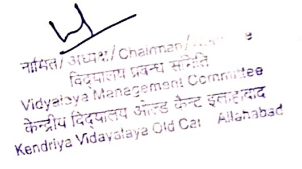 नामित/ अध्यक्ष/ Chairman/
विद्यालय प्रबन्ध समिति
Vidyalaya Management Committee
केन्द्रीय विद्यालय ओल्ड कैन्ट इलाहाबाद
Kendriya Vidayalaya Old Can Allahabad